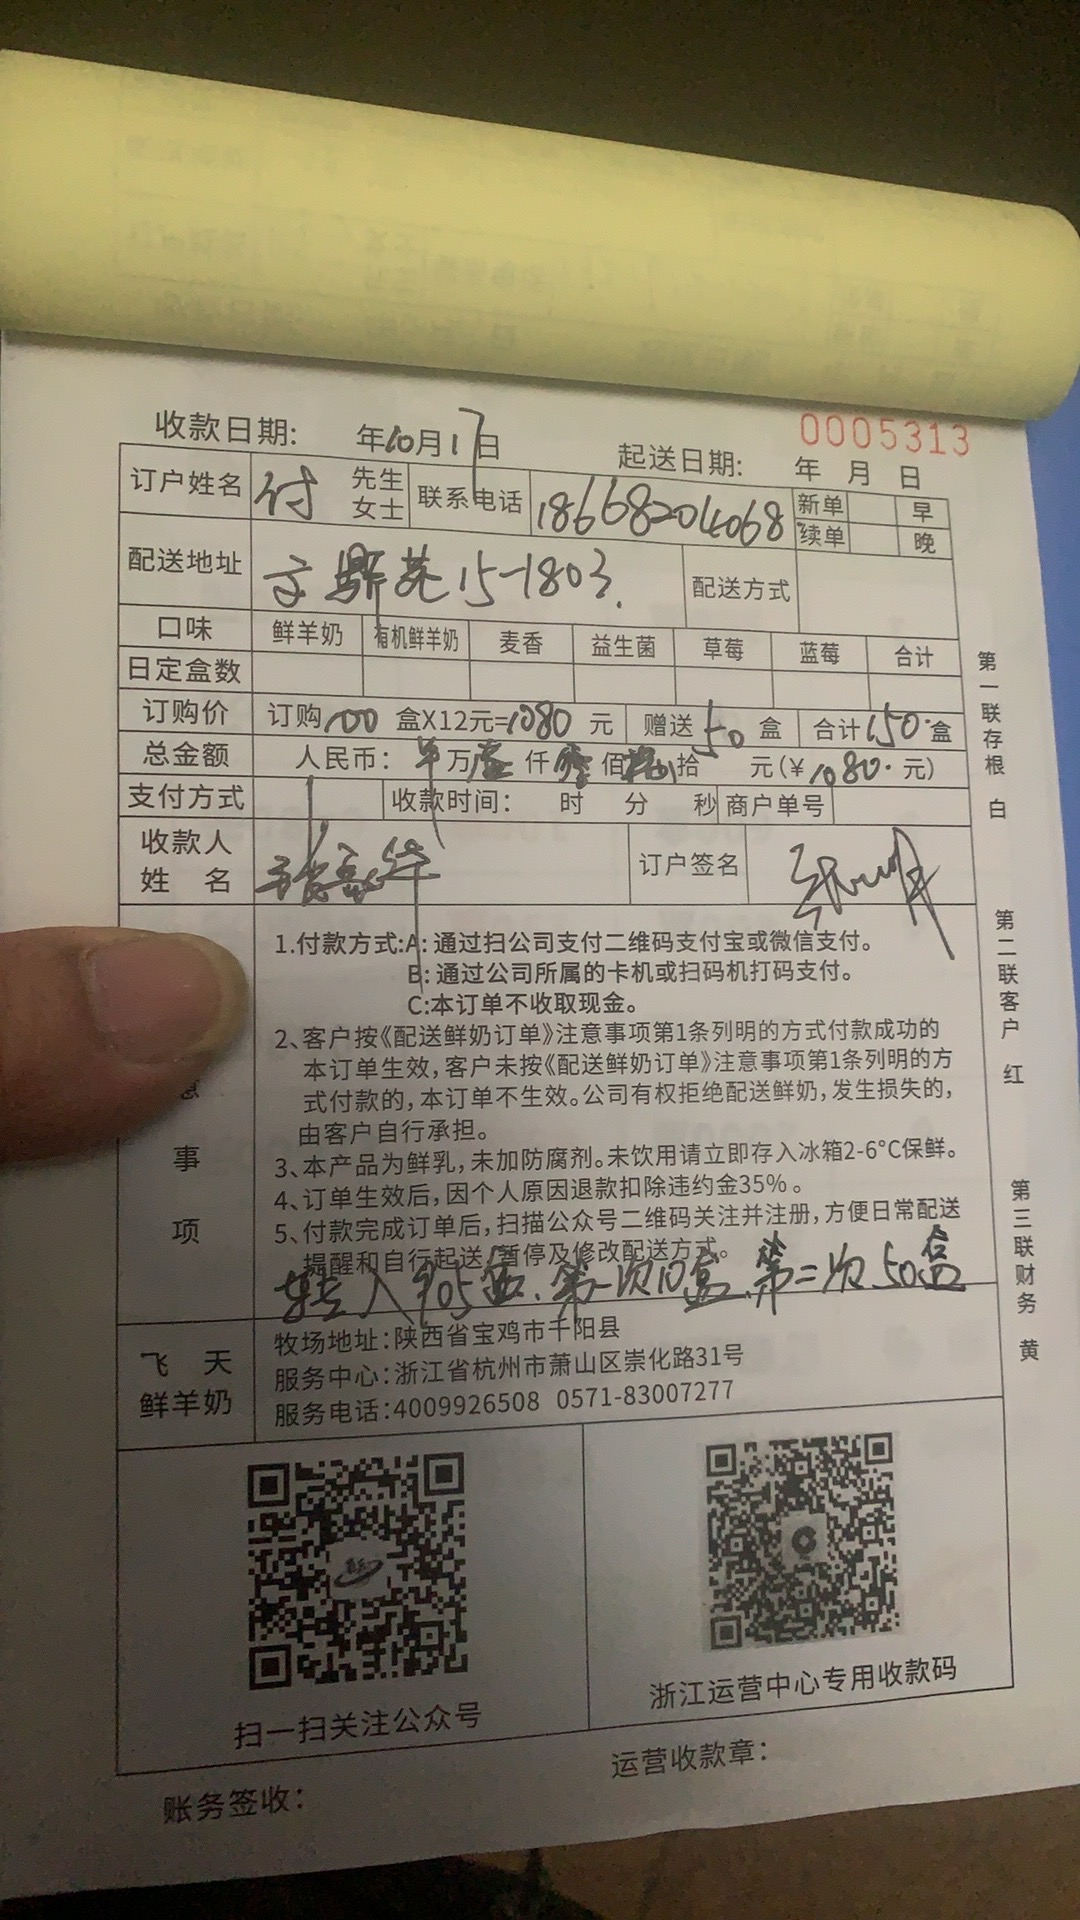 0005313
收款日期: 年10月17日 起送日期: 年 月 日
订户姓名 付 先生 女士 联系电话 18668204068 新单 早
续单 晚
配送地址 文鼎苑15-1803. 配送方式
口味 鲜羊奶 有机鲜羊奶 麦香 益生菌 草莓 蓝莓 合计
日定盒数
订购价 订购100盒X12元=1080元 赠送50盒 合计150.盒
总金额 人民币: 万壹仟零佰捌拾 元(¥1080.元)
支付方式 收款时间: 时 分 秒 商户单号
收款人
姓 名 订户签名
1.付款方式:A:通过扫公司支付二维码支付宝或微信支付。
B:通过公司所属的卡机或扫码机打码支付。
C:本订单不收取现金。
2、客户按《配送鲜奶订单》注意事项第1条列明的方式付款成功的
本订单生效,客户未按《配送鲜奶订单》注意事项第1条列明的方
式付款的,本订单不生效。公司有权拒绝配送鲜奶,发生损失的,
由客户自行承担。
事
3、本产品为鲜乳,未加防腐剂。未饮用请立即存入冰箱2-6°C保鲜。
4、订单生效后,因个人原因退款扣除违约金35%。
项
5、付款完成订单后,扫描公众号二维码关注并注册,方便日常配送
提醒和自行起送、暂停及修改配送方式。
转入905盒.第一次10盒.第二次50盒
飞 天
鲜羊奶
牧场地址:陕西省宝鸡市千阳县
服务中心:浙江省杭州市萧山区崇化路31号
服务电话:4009926508 0571-83007277
扫一扫关注公众号
浙江运营中心专用收款码
账务签收:
运营收款章:
第一联存根 白
第二联客户 红
第三联财务 黄